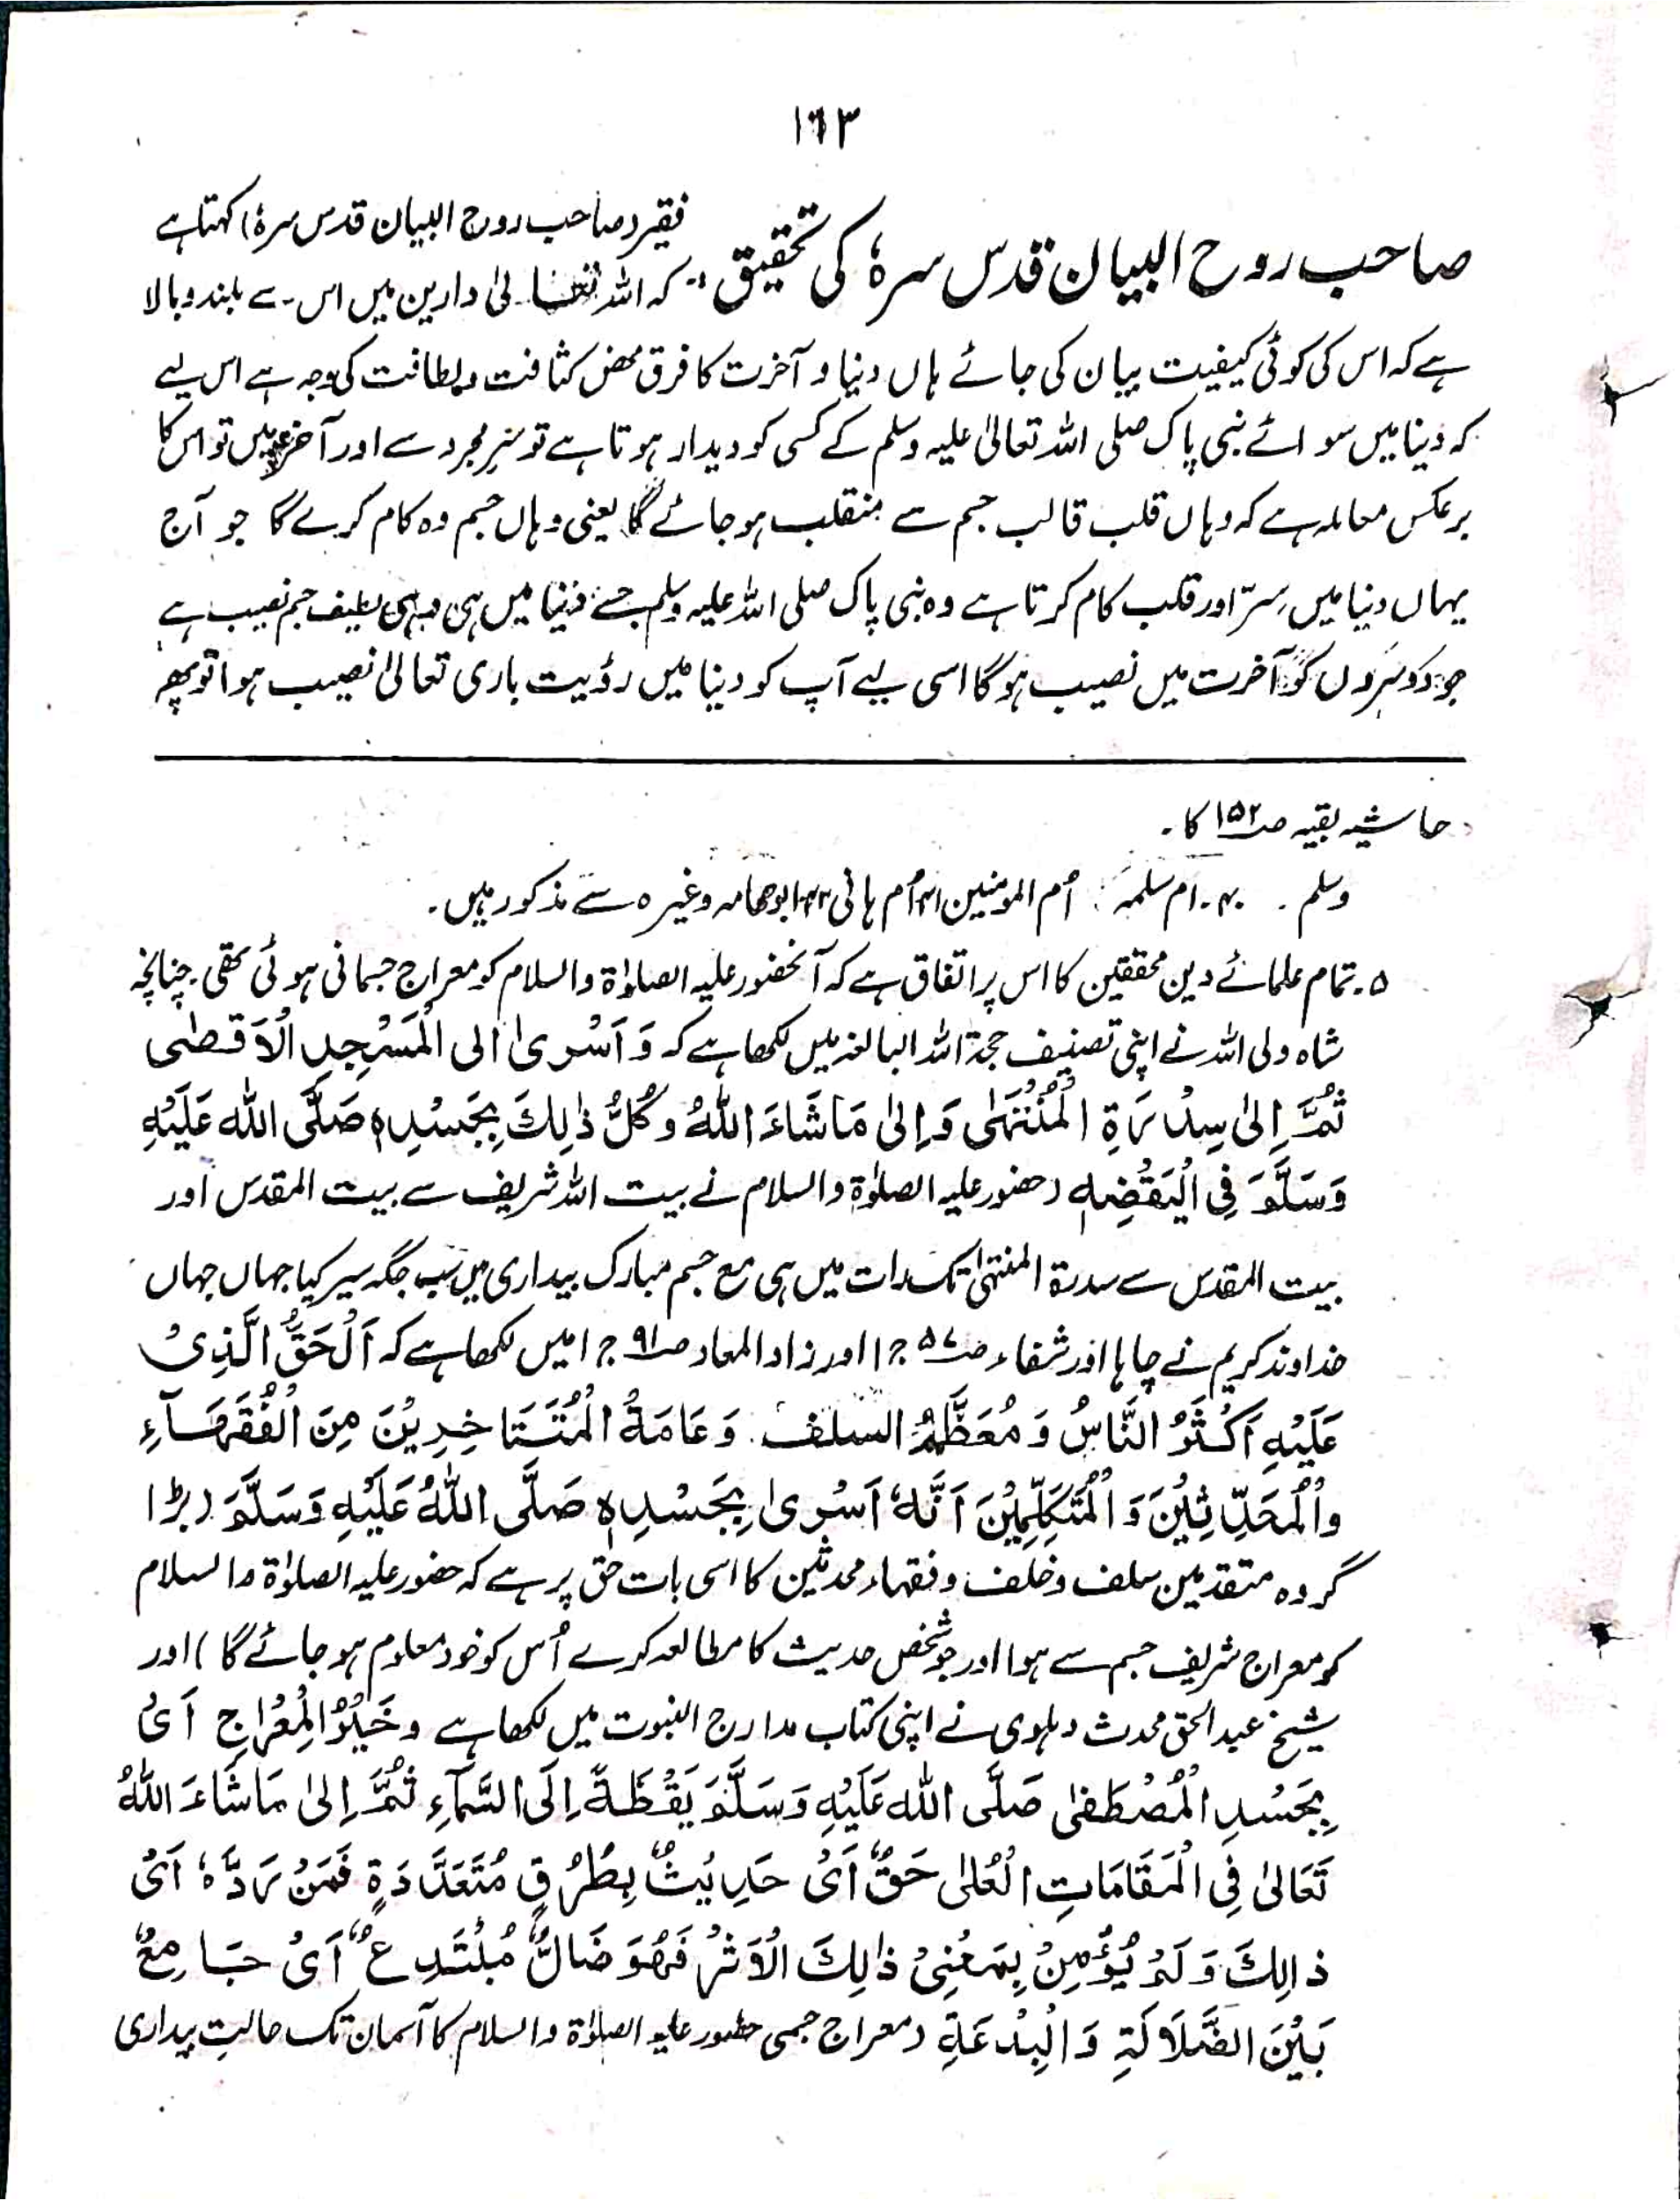 ١٦٣
صاحب روح البیان قدس سرہٗ کی تحقیق :- فقیر (صاحب روح البیان قدس سرہٗ) کہتا ہے
کہ اللہ تعالیٰ دارین میں اس سے بلند و بالا
ہے کہ اس کی کوئی کیفیت بیان کی جائے ہاں دنیا و آخرت کا فرق محض کثافت و لطافت کی وجہ ہے اس لیے
کہ دنیا میں سوائے نبی پاک صلی اللہ تعالیٰ علیہ وسلم کے کسی کو دیدار ہوتا ہے تو سرِ مجرد سے اور آخرت میں تو اس کا
برعکس معاملہ ہے کہ وہاں قلب قالب جسم سے منقلب ہو جائے گا یعنی وہاں جسم وہ کام کرے گا جو آج
یہاں دنیا میں سِرّ اور قلب کام کرتا ہے وہ نبی پاک صلی اللہ علیہ وسلم جسے دنیا میں ہی وہی لطیف جسم نصیب ہے
جو دوسروں کو آخرت میں نصیب ہوگا اسی لیے آپ کو دنیا میں رؤیت باری تعالیٰ نصیب ہوا تو پھر
حاشیہ بقیہ صـ ۱۵۲ کا۔
وسلم ۔ ۴۰۔ ام سلمہ اُم المومنین ۴۱ اُم ہانی ۴۲ ابو وغیرہ سے مذکور ہیں۔
۵۔ تمام علمائے دین محققین کا اس پر اتفاق ہے کہ آنحضور علیہ الصلوٰۃ والسلام کو معراج جسمانی ہوئی تھی۔ چنانچہ
شاہ ولی اللہ نے اپنی تصنیف حجۃ اللہ البالغہ میں لکھا ہے کہ وَ اَسْریٰ الی الْمَسْجِدِ الْاَقصٰی
ثُمَّ اِلیٰ سِدْرَۃِ الْمُنْتَهٰی وَ اِلیٰ مَا شَاءَ اللّٰہُ وَ کُلُّ ذٰلِکَ بِجَسْدِہٖ صَلَّی اللّٰہ عَلَیْہِ
وَسَلَّمَ فِی الْیَقْضِہِ (حضور علیہ الصلوٰۃ والسلام نے بیت اللہ شریف سے بیت المقدس اور
بیت المقدس سے سدرۃ المنتہیٰ تک رات میں ہی مع جسم مبارک بیداری میں سب جگہ سیر کیا جہاں جہاں
خداوند کریم نے چاہا اور شفاء صـ ۵۷ ج ۱ اور زاد المعاد صـ ۹۱ ج ۱ میں لکھا ہے کہ اَلْحَقُّ الَّذِیْ
عَلَیْہِ اَکْثَرُ النَّاسُ وَ مُعَظَّمُ السلف وَ عَامَۃُ الْمُتَتَاخِرِیْنَ مِنَ الْفُقَهَآءِ
وِالْمُحَدِّثِیْنَ وَ الْمُتَکَلِّمِیْنَ اَنَّہٗ اَسْریٰ بِجَسْدِہٖ صَلَّی اللّٰہُ عَلَیْہِ وَسَلَّمَ (بڑا
گروہ متقدمین سلف و خلف و فقہاء محدثین کا اسی بات حق پر ہے کہ حضور علیہ الصلوٰۃ والسلام
کو معراج شریف جسم سے ہوا اور جو شخص حدیث کا مطالعہ کرے اُس کو خود معلوم ہو جائے گا) اور
شیخ عبدالحق محدث دہلوی نے اپنی کتاب مدارج النبوت میں لکھا ہے و خَیْرُ الْمِعْرَاجِ اَیْ
بِجَسْدِ الْمُصْطَفیٰ صَلَّی اللّٰہ عَلَیْہِ وَسَلَّمَ یَقْظَۃً اِلَی السَّمَآءِ ثُمَّ اِلیٰ مَا شَاءَ اللّٰہُ
تَعَالیٰ فِی الْمَقَامَاتِ الْعُلیٰ حَقٌّ اَیْ حَدِیْثٌ بِطُرُقٍ مُتَعَدَّدَۃٍ فَمَنْ رَدَّہٗ اَیْ
ذٰلِکَ وَ لَمْ یُؤْمِنْ بِمَعْنِیْ ذٰلِکَ الْاَثْرُ فَهُوَ ضَالٌّ مُبْتَدِعٌ اَیْ جَامِعٌ
بَیْنَ الضَّلَالَۃِ وَ الْبِدْعَۃِ (معراج جسمی حضور علیہ الصلوٰۃ والسلام کا آسمان تک حالتِ بیداری